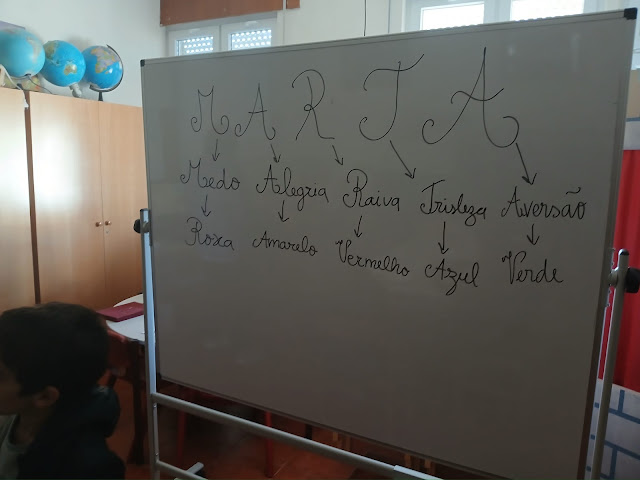 M A R T A
Medo Alegria Raiva Tristeza Aversão
Roxa Amarelo Vermelho Azul Verde